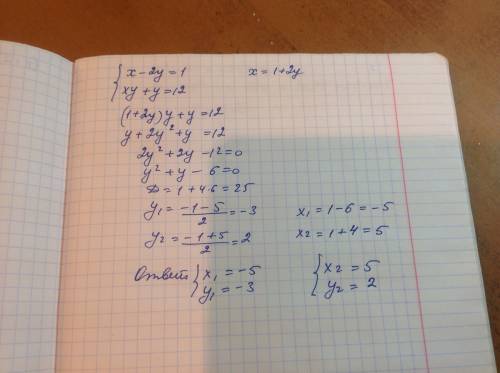 { x - 2y = 1        x = 1 + 2y
{ xy + y = 12
(1+2y) y + y = 12
y + 2y² + y = 12
2y² + 2y - 12 = 0
y² + y - 6 = 0
D = 1 + 4·6 = 25
y₁ = (-1-5)/2 = -3        x₁ = 1 - 6 = -5
y₂ = (-1+5)/2 = 2        x₂ = 1 + 4 = 5
Ответ { x₁ = -5        { x₂ = 5
{ y₁ = -3        { y₂ = 2